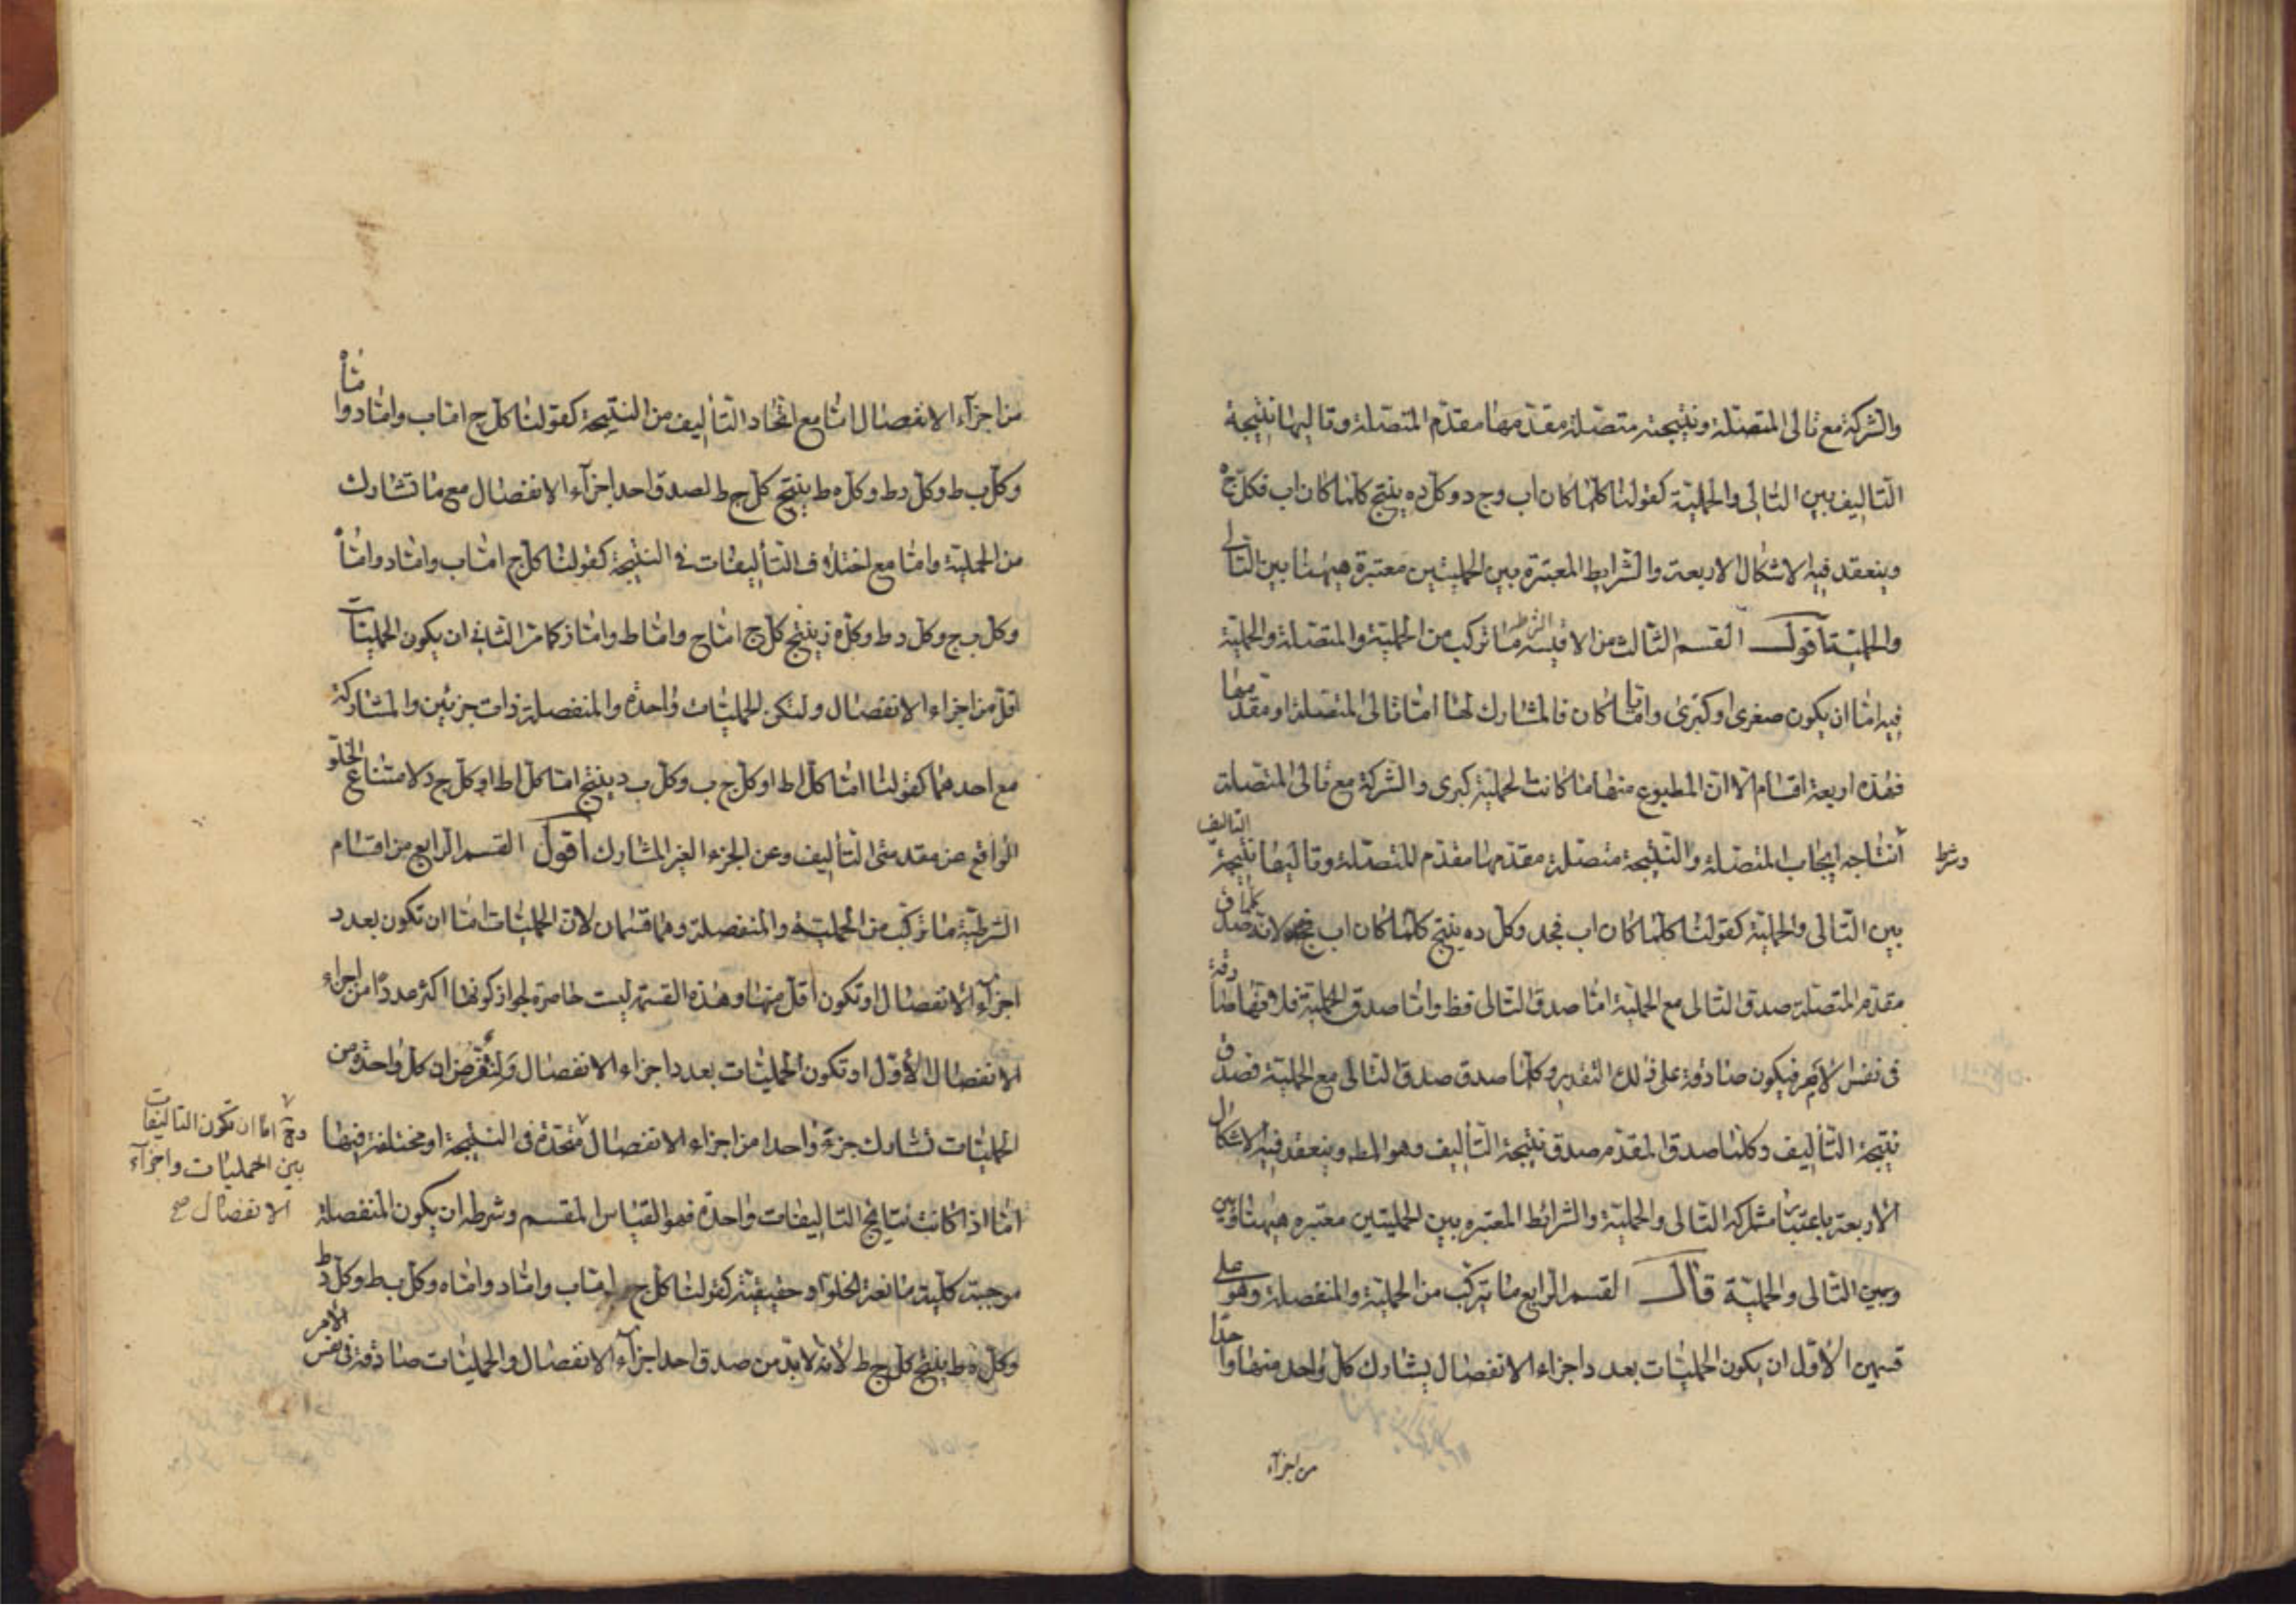 والشركة مع تالى المتصلة ونتيجته متصلة مقدمها مقدم المتصلة وتاليها نتيجة
التاليف بين التالى والحملية كقولنا كلما كان اب وج د وكل ده ينتج كلما كان اب فكل ج ه
وينعقد فيه الاشكال الاربعة والشرايط المعتبرة بين الحمليتين معتبرة ههنا بين التالى
والحملية اقول القسم الثالث من الاقيسة الشرطية ما تركب من الحملية والمتصلة والحملية
فيه اما ان يكون صغرى او كبرى واياما كان فالمشارك لها اما تالى المتصلة او مقدمها
فهذه اربعة اقسام الا ان المطبوع منها ما كانت الحملية كبرى والشركة مع تالى المتصلة
وشرط
انتاجه ايجاب المتصلة والنتيجة متصلة مقدمها مقدم المتصلة وتاليها نتيجة التاليف
بين التالى والحملية كقولنا كلما كان اب فجد وكل ده ينتج كلما كان اب فجه لانه كلما صدق
مقدم المتصلة صدق التالى مع الحملية اما صدق التالى فظ واما صدق الحملية فلانها صادقة
فى نفس الامر فيكون صادقة على ذلك التقدير وكلما صدق صدق التالى مع الحملية فصدق
نتيجة التأليف وكلما صدق المقدم صدق نتيجة التأليف وهو المط وينعقد فيه الاشكال
الاربعة باعتبار مشاركة التالى والحملية والشرائط المعتبره بين الحمليتين معتبره ههنا وبين
وبين التالى والحملية قال القسم الرابع ما يتركب من الحملية والمنفصلة وهو على
قسمين الاول ان يكون الحمليات بعدد اجزاء الانفصال يشارك كل واحد منها واحدا
من اجزآء
من اجزآء الانفصال اما مع اتحاد التأليف من النتيجة كقولنا كل ج اما ب واما د واما ه
وكل ب ط وكل د ط وكل ه ط ينتج كل ج ط لصدق احد اجزآء الانفصال مع ما تشارك
من الحملية واما مع اختلاف التأليفات فى النتيجة كقولنا كل ج اما ب واما د واما ه
وكل ب ج وكل د ط وكل ه ز ينتج كل ج اما ج واما ط واما ز كما مر الثانى ان يكون الحمليات
اقل من اجزاء الانفصال ولنكن الحمليات واحدة والمنفصلة ذات جزئين والمشاركة
مع احدهما كقولنا اما كل اط او كل ج ب وكل ب د ينتج اما كل اط او كل ج د لامتناع الخلو
الواقع عن مقدمتى التأليف وعن الجزء الغير المشارك اقول القسم الرابع من اقسام
الشرطية ما تركب من الحملية والمنفصلة وهما قسمان لان الحمليات اما ان تكون بعدد
اجزآء الانفصال او تكون اقل منها وهذه القسمة ليست حاصرة لجواز كونها اكثر عددا من اجزاء
الانفصال الاول ان تكون الحمليات بعدد اجزاء الانفصال ولنفرض ان كل واحدة من
الحمليات تشارك جزءً واحدا من اجزاء الانفصال متحدة فى النتيجة او مختلفة فيها
وح اما ان تكون التاليفات
بين الحمليات واجزآء
الانفصال صح
اما اذا كانت نتايج التاليفات واحدة فهو القياس المقسم وشرطه ان يكون المنفصلة
موجبة كلية مانعة الخلو او حقيقية كقولنا كل ج اما ب واما د واما ه وكل ب ط وكل د ط
وكل ه ط ينتج كل ج ط لانه لا بد من صدق احد اجزآء الانفصال والحمليات صادقة فى نفس الامر